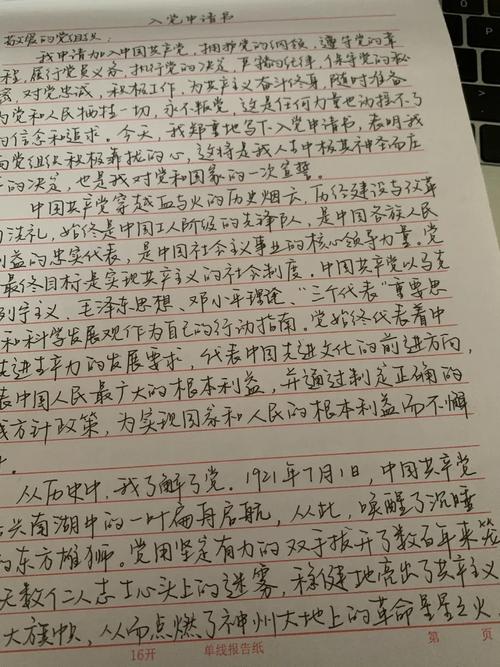 入党申请书
敬爱的党组织:
我申请加入中国共产党,拥护党的纲领,遵守党的章
程,履行党员义务,执行党的决定,严格纪律,保守党的秘
密,对党忠诚,积极工作,为共产主义奋斗终身,随时准备
为党和人民牺牲一切,永不叛党,这是任何力量也动摇不了
的信念和追求。今天,我郑重地写下入党申请书,表明我
向党组织积极靠拢的心,这将是我人生中极其神圣而庄
的决定,也是我对党和国家的一次宣誓。
中国共产党穿越血与火的历史烟云,历经建设与改革
的洗礼,始终是中国工人阶级的先锋队,是中国各族人民
利益的忠实代表,是中国社会主义事业的核心领导力量。党
最终目标是实现共产主义的社会制度。中国共产党以马克
列宁主义、毛泽东思想、邓小平理论、“三个代表”重要思
和科学发展观作为自己的行动指南。党始终代表着中
先进生产力的发展要求,代表中国先进文化的前进方向,
表中国人民最广大的根本利益,并通过制定正确的
线方针政策,为实现国家和人民的根本利益而不懈
从历史中,我了解了党。1921年7月1日,中国共产党
嘉兴南湖中的一叶扁舟启航,从此,唤醒了沉睡
的东方雄狮。党用坚定有力的双手拔开了数百年来笼
无数仁人志士心头上的迷雾,稳健地亮出了共产主义
大旗帜,从而点燃了神州大地上的革命星星之火,
16开 单线报告纸 第 页